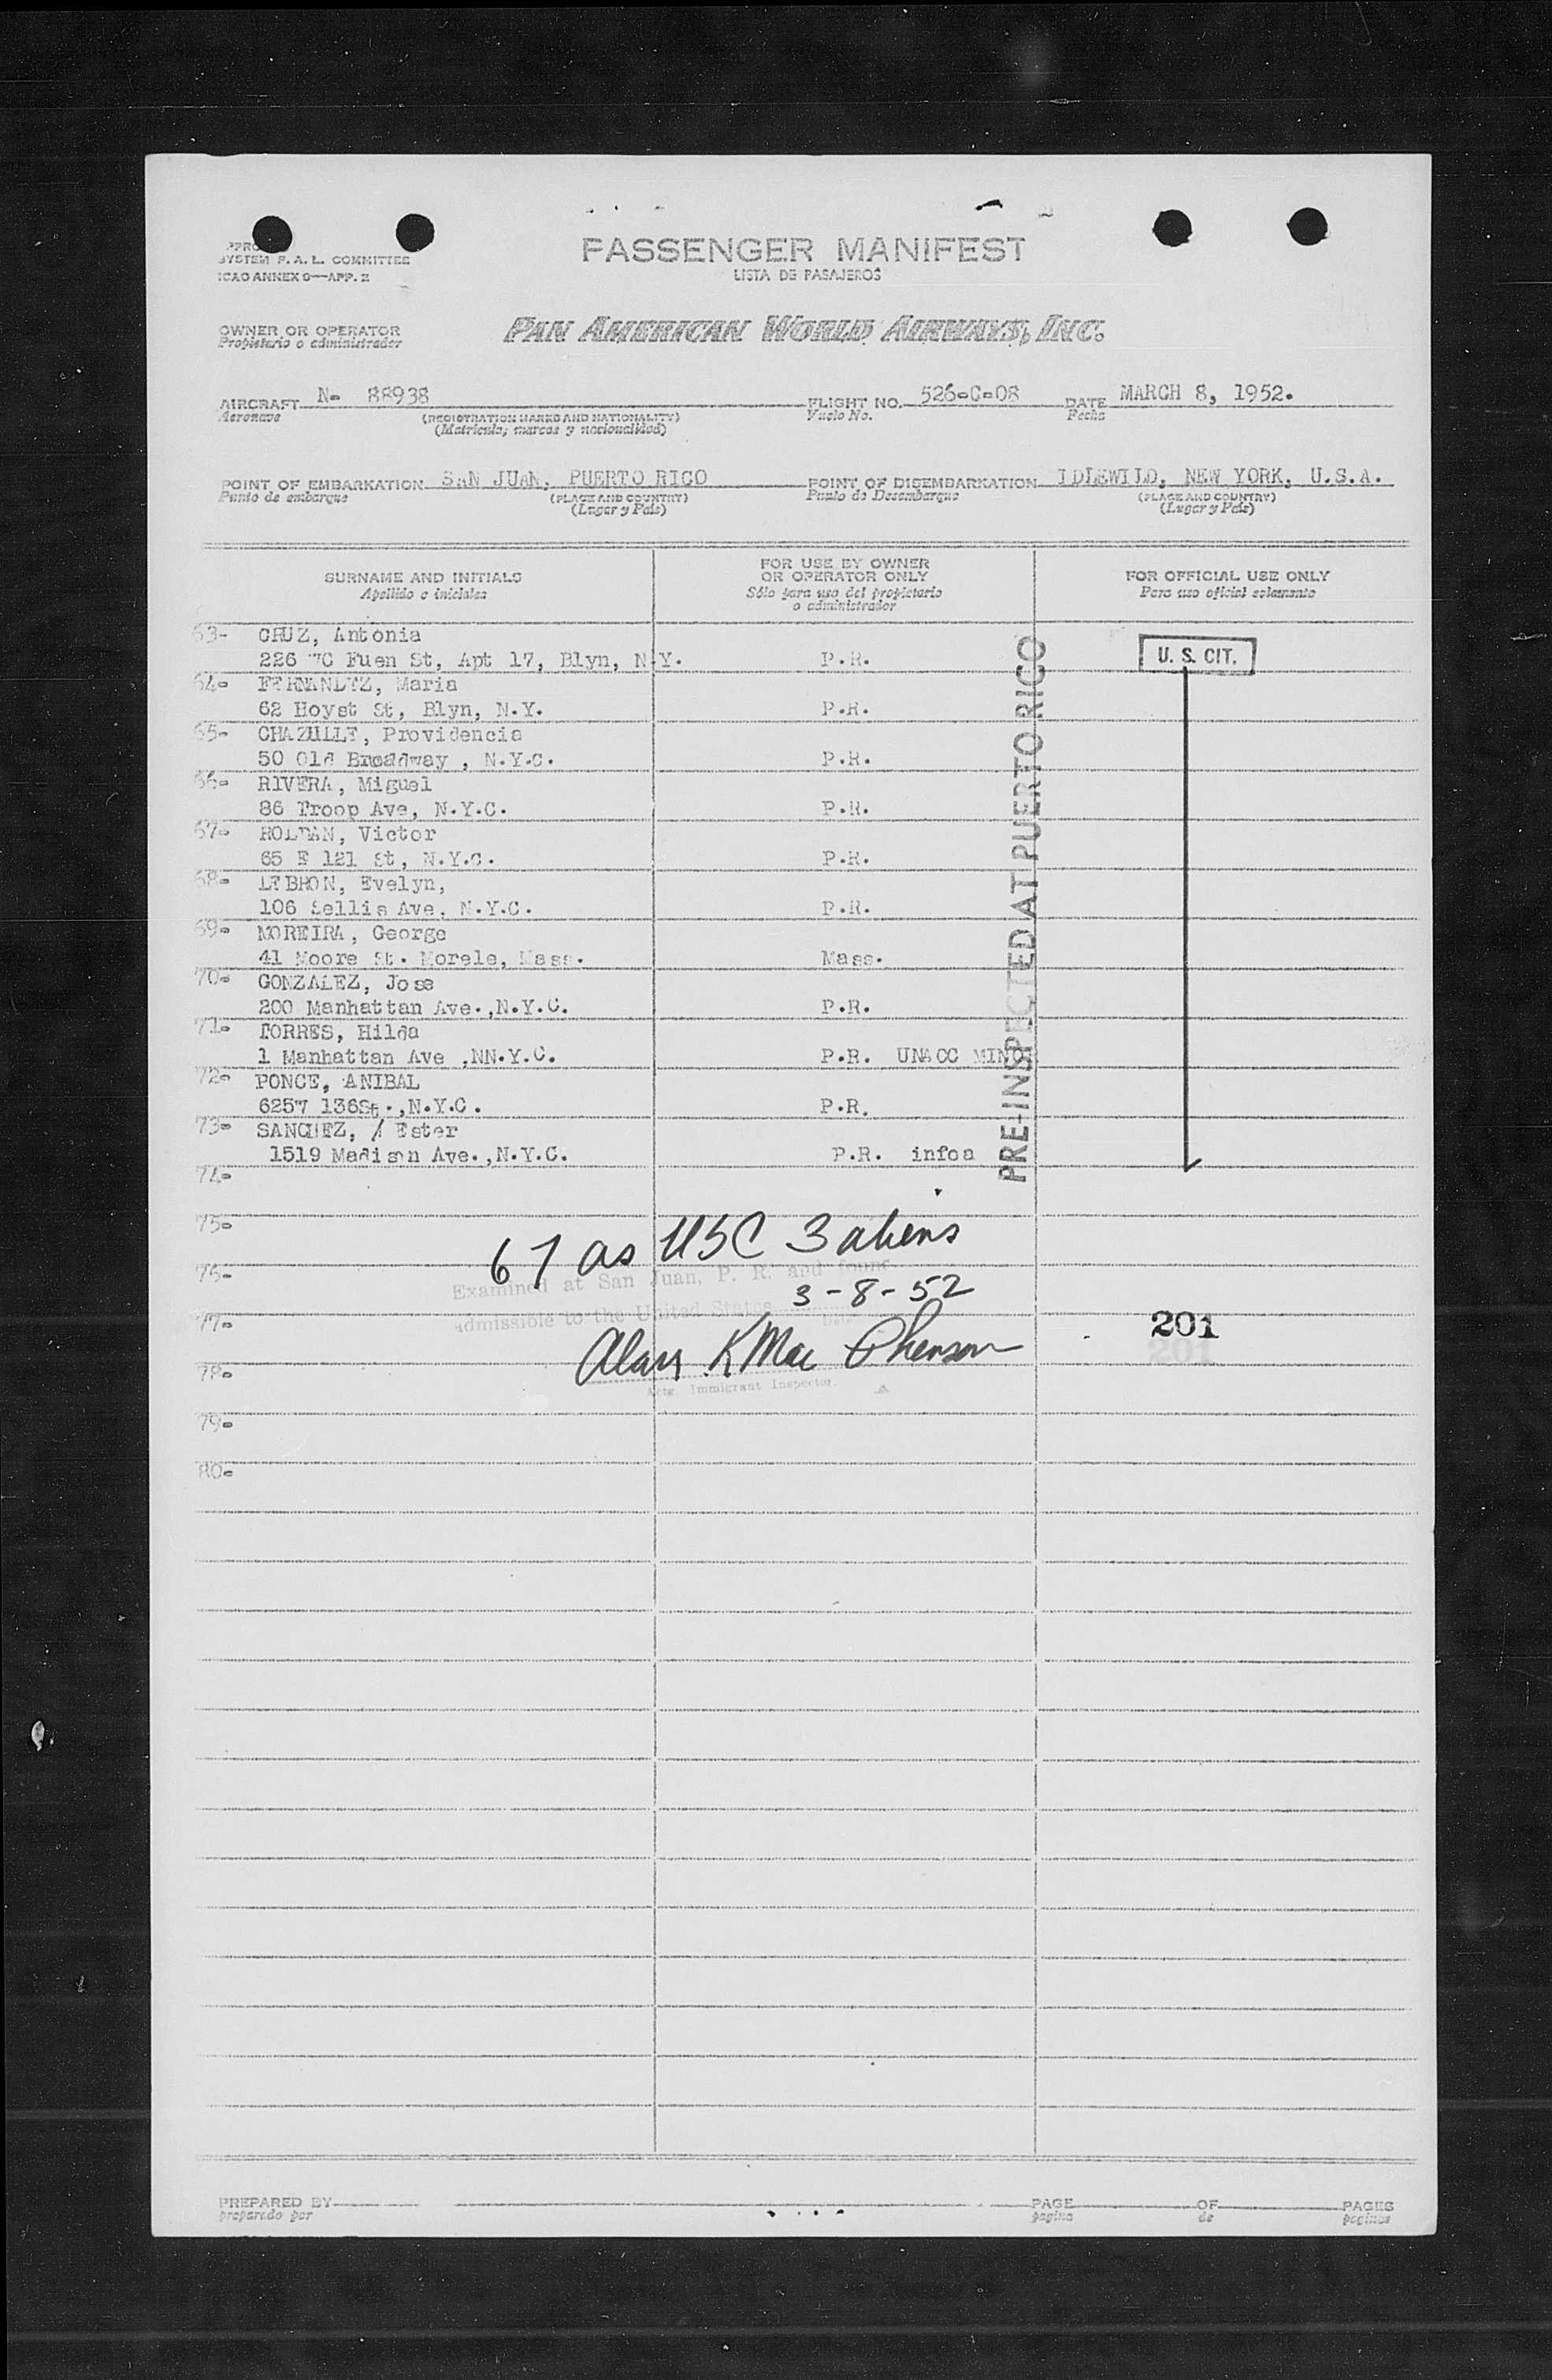 SYSTEM F. A. L. COMMITTEE
ICAO ANNEX 9—APP. 2
PASSENGER MANIFEST
LISTA DE PASAJEROS
OWNER OR OPERATOR
Propietario o administrador
PAN AMERICAN WORLD AIRWAYS, INC.
AIRCRAFT N- 88938 FLIGHT NO. 526-C-08 DATE MARCH 8, 1952.
Aeronave (REGISTRATION MARKS AND NATIONALITY) Vuelo No. Fecha
(Matricula; marcas y nacionalidad)
POINT OF EMBARKATION SAN JUAN, PUERTO RICO POINT OF DISEMBARKATION IDLEWILD, NEW YORK, U.S.A.
Punto de embarque (PLACE AND COUNTRY) Punto de Desembarque (PLACE AND COUNTRY)
(Lugar y País) (Lugar y País)
SURNAME AND INITIALS FOR USE BY OWNER OR OPERATOR ONLY FOR OFFICIAL USE ONLY
Apellido e iniciales Sólo para uso del propietario o administrador Para uso oficial solamente
63- CRUZ, Antonia
226 Fuen St, Apt 17, Blyn, N.Y. P.R. U. S. CIT.
64- FERNANDEZ, Maria
62 Hoyst St, Blyn, N.Y. P.R.
65- CHAZULLE, Providencia
50 Old Broadway , N.Y.C. P.R.
66- RIVERA, Miguel
86 Troop Ave, N.Y.C. P.R.
67- ROLDAN, Victor
65 E 121 St, N.Y.C. P.R.
68- LEBRON, Evelyn,
106 Sellis Ave, N.Y.C. P.R.
69- MOREIRA, George
41 Moore St. Morele, Mass. Mass.
70- GONZALEZ, Jose
200 Manhattan Ave.,N.Y.C. P.R.
71- TORRES, Hilda
1 Manhattan Ave ,NN.Y.C. P.R. UNACC MINOR
72- PONCE, ANIBAL
6257 136St.,N.Y.C. P.R.
73- SANCHEZ, / Ester
1519 Madison Ave.,N.Y.C. P.R. infoa
PRE-INSPECTED AT PUERTO RICO
74-
75-
67 as USC 3 aliens
76-
Examined at San Juan, P. R. and found
3-8-52
admissible to the United States
Date
77-
201
201
Alan K Mac Pherson
78-
Actg. Immigrant Inspector.
79-
80-
PREPARED BY PAGE OF PAGES
preparado por página de páginas